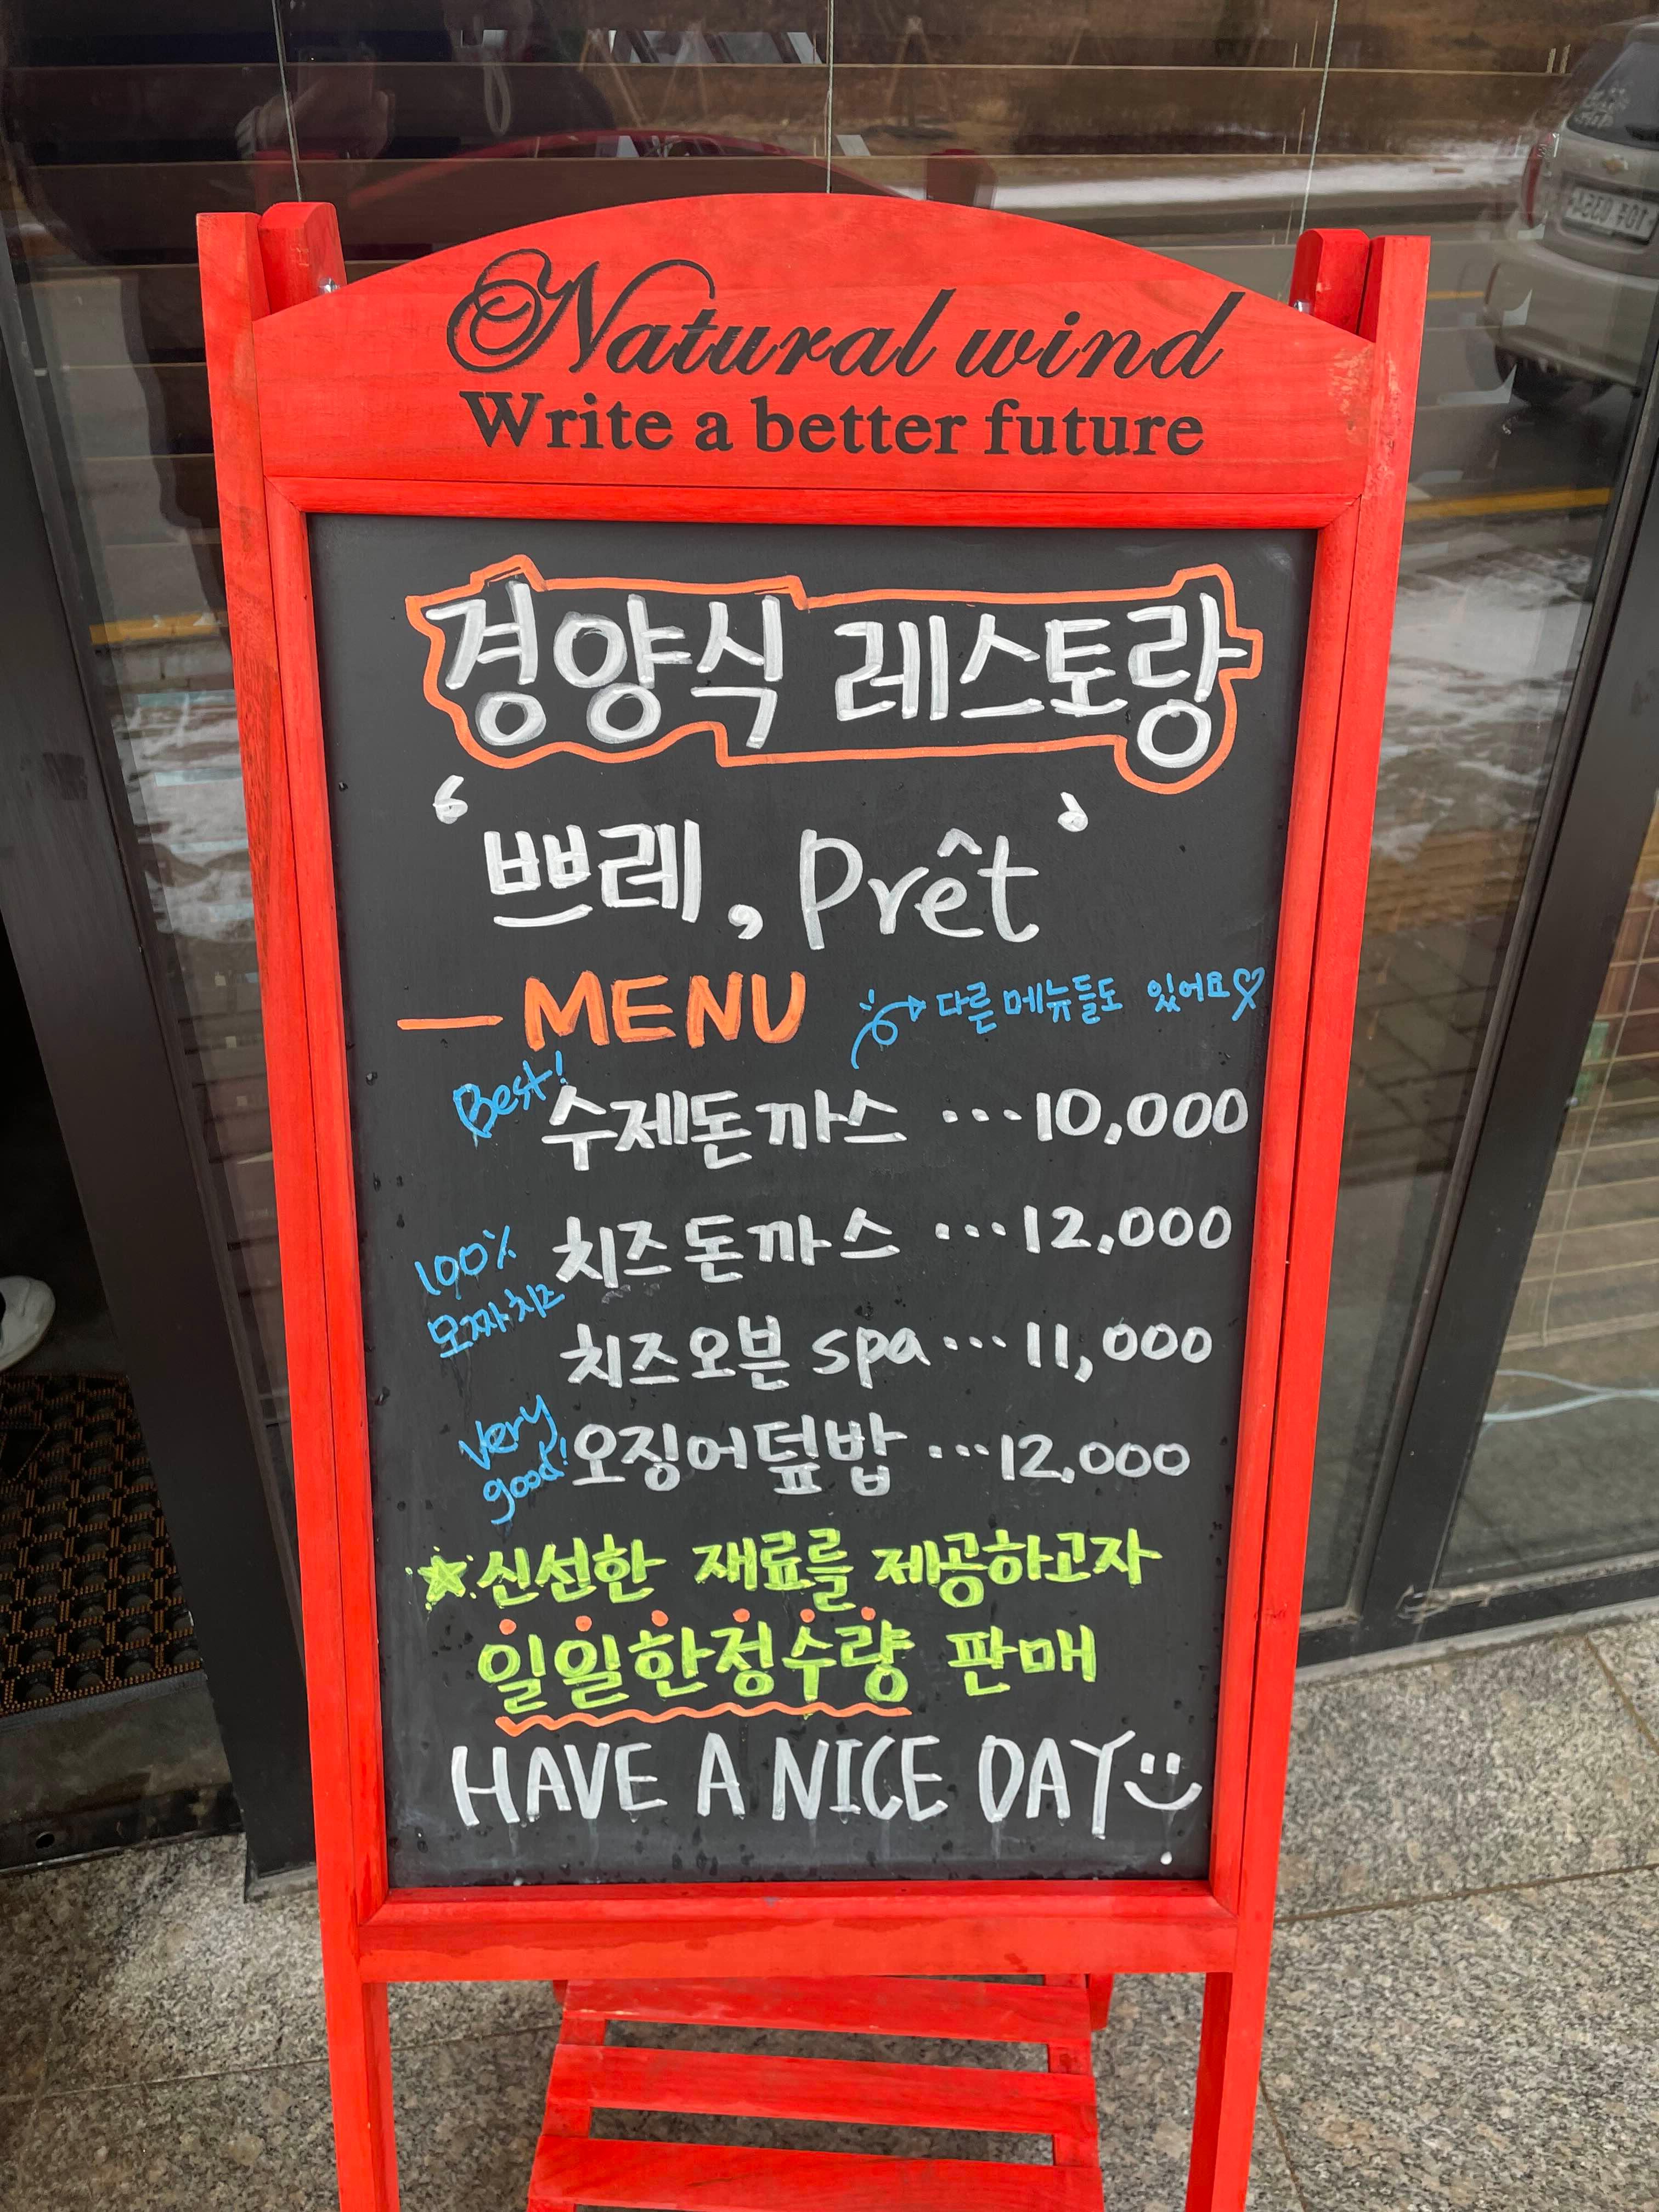 Natural wind
Write a better future
경양식 레스토랑
‘쁘레, Prêt’
— MENU
다른 메뉴들도 있어요♡
Best! 수제돈까스 ...10,000
100% 모짜치즈 치즈돈까스 ...12,000
치즈오븐 spa ...11,000
very good! 오징어덮밥 ...12,000
☆신선한 재료를 제공하고자
일일한정수량 판매
HAVE A NICE DAY